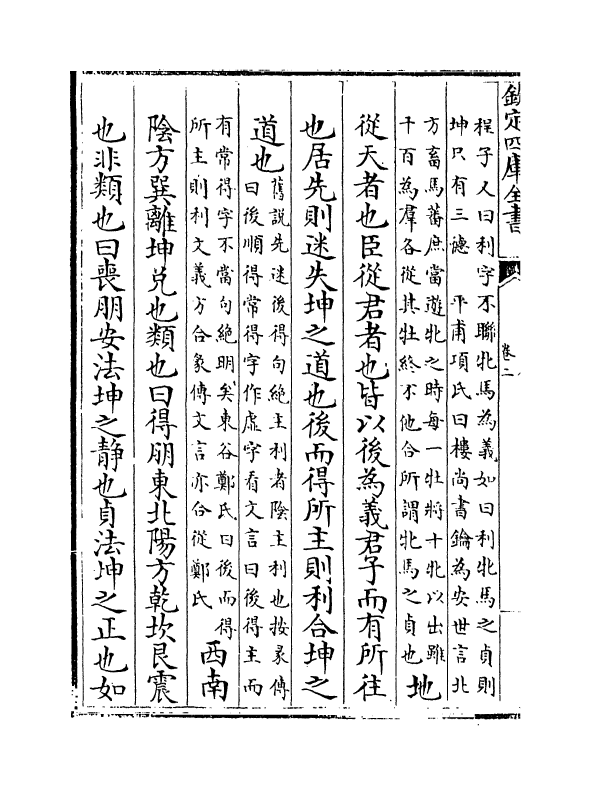 欽定四庫全書
卷二
程子又曰利字不聯牝馬為義如曰利牝馬之貞則
坤只有三德　平甫項氏曰樓尚書鑰為安世言北
方畜馬蕃庶當遊牝之時每一牡將十牝以出雖
千百為羣各從其牡終不他合所謂牝馬之貞也　地
從天者也臣從君者也皆以後為義君子而有所往
也居先則迷失坤之道也後而得所主則利合坤之
道也　舊說先迷後得句絶主利者陰主利也按彖傳
曰後順得常得字作虛字看文言曰後得主而
有常得字不當句絶明矣東谷鄭氏曰後而得
所主則利文義方合彖傳文言亦合從鄭氏　西南
陰方巽離坤兌也類也曰得朋東北陽方乾坎艮震
也非類也曰喪朋安法坤之静也貞法坤之正也如